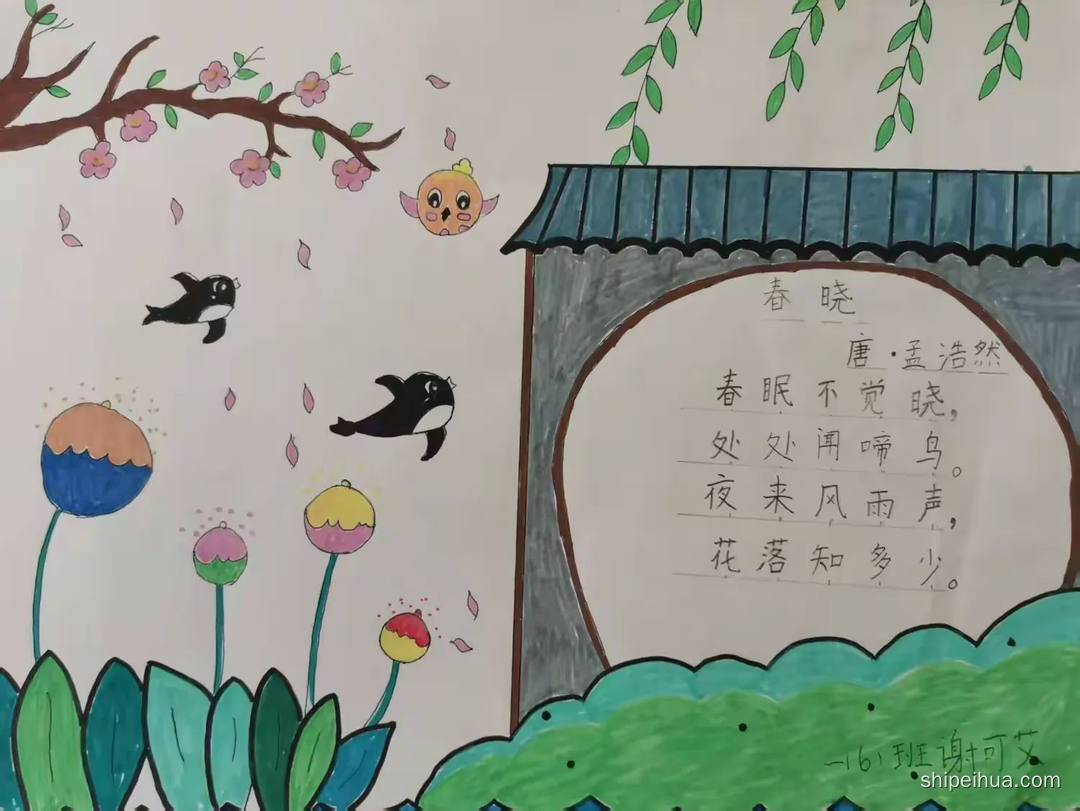 春晓
唐·孟浩然
春眠不觉晓,
处处闻啼鸟。
夜来风雨声,
花落知多少。
一(6)班谢可艾
shipeihua.com